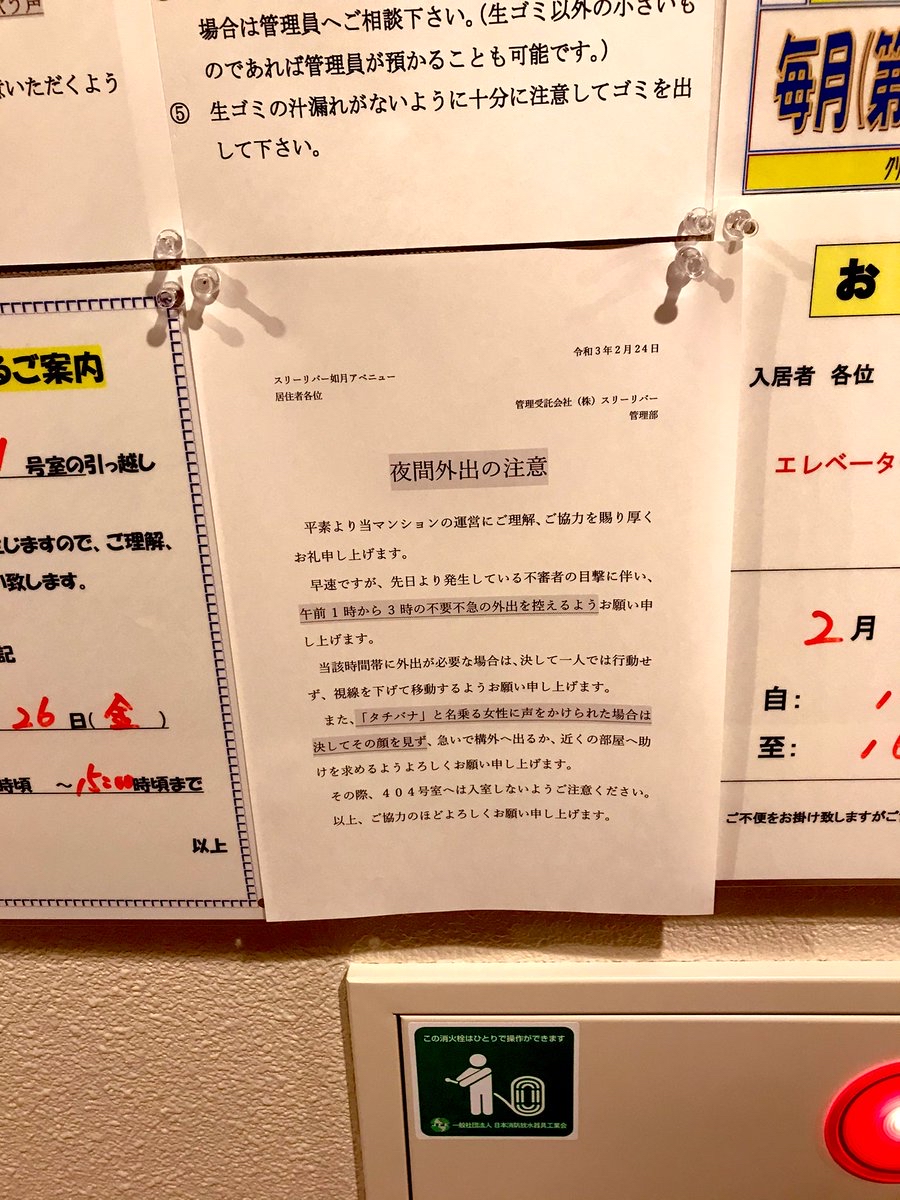 場合は管理員へご相談下さい。（生ゴミ以外の小さいも
のであれば管理員が預かることも可能です。）
⑤ 生ゴミの汁漏れがないように十分に注意してゴミを出
して下さい。
いただくよう
毎月(第
るご案内
号室の引っ越し
生じますので、ご理解、
い致します。
記
26日(金)
時頃 ～15:00時頃まで
以上
令和3年2月24日
スリーリバー如月アベニュー
居住者各位
管理受託会社（株）スリーリバー
管理部
夜間外出の注意
平素より当マンションの運営にご理解、ご協力を賜り厚く
お礼申し上げます。
早速ですが、先日より発生している不審者の目撃に伴い、
午前1時から3時の不要不急の外出を控えるようお願い申
し上げます。
当該時間帯に外出が必要な場合は、決して一人では行動せ
ず、視線を下げて移動するようお願い申し上げます。
また、「タチバナ」と名乗る女性に声をかけられた場合は
決してその顔を見ず、急いで構外へ出るか、近くの部屋へ助
けを求めるようよろしくお願い申し上げます。
その際、404号室へは入室しないようご注意ください。
以上、ご協力のほどよろしくお願い申し上げます。
お
入居者 各位
エレベータ
2月
自：
至：
ご不便をお掛け致しますがご
この消火栓はひとりで操作ができます
一般社団法人 日本消防放水器具工業会